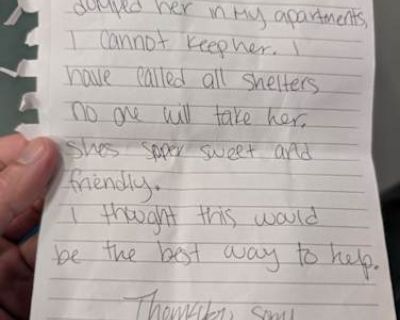 dumped her in my apartments,
I cannot keep her. I
have called all shelters
no one will take her.
shes super sweet and
friendly.
I thought this would
be the best way to help.
Thank you, sorry